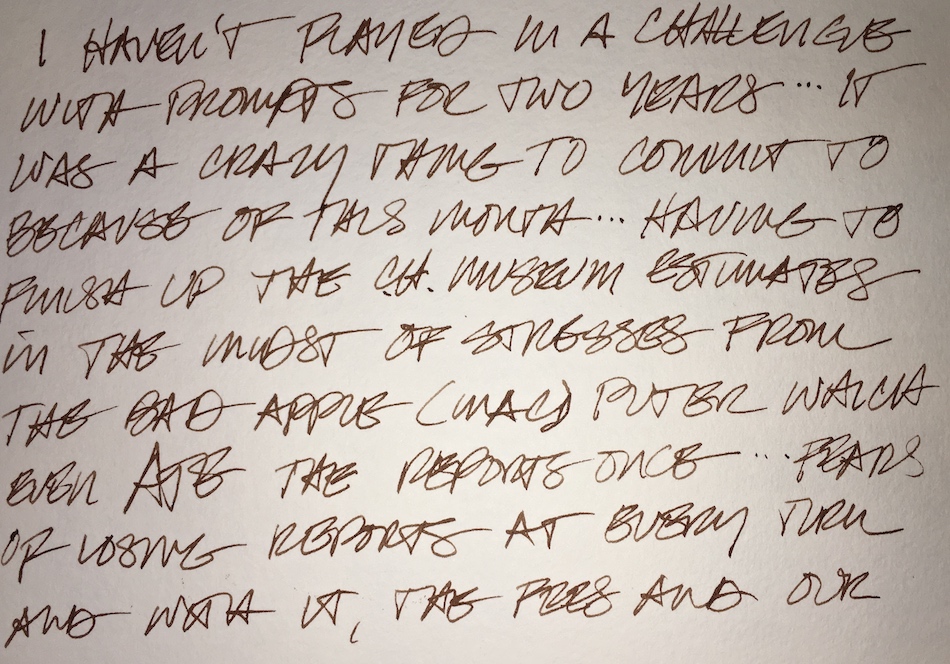 I HAVEN'T PLAYED IN A CHALLENGE
WITH PROMPTS FOR TWO YEARS... IT
WAS A CRAZY TIME TO COMMIT TO
BECAUSE OF THIS MONTH... HAVING TO
FINISH UP THE CH. MUSEUM ESTIMATES
IN THE MIDST OF STRESSES FROM
THE BAD APPLE (MAC) PUTER WHICH
EVEN ATE THE REPORTS ONCE... FEARS
OF LOSING REPORTS AT EVERY TURN
AND WITH IT, THE FEES AND OUR